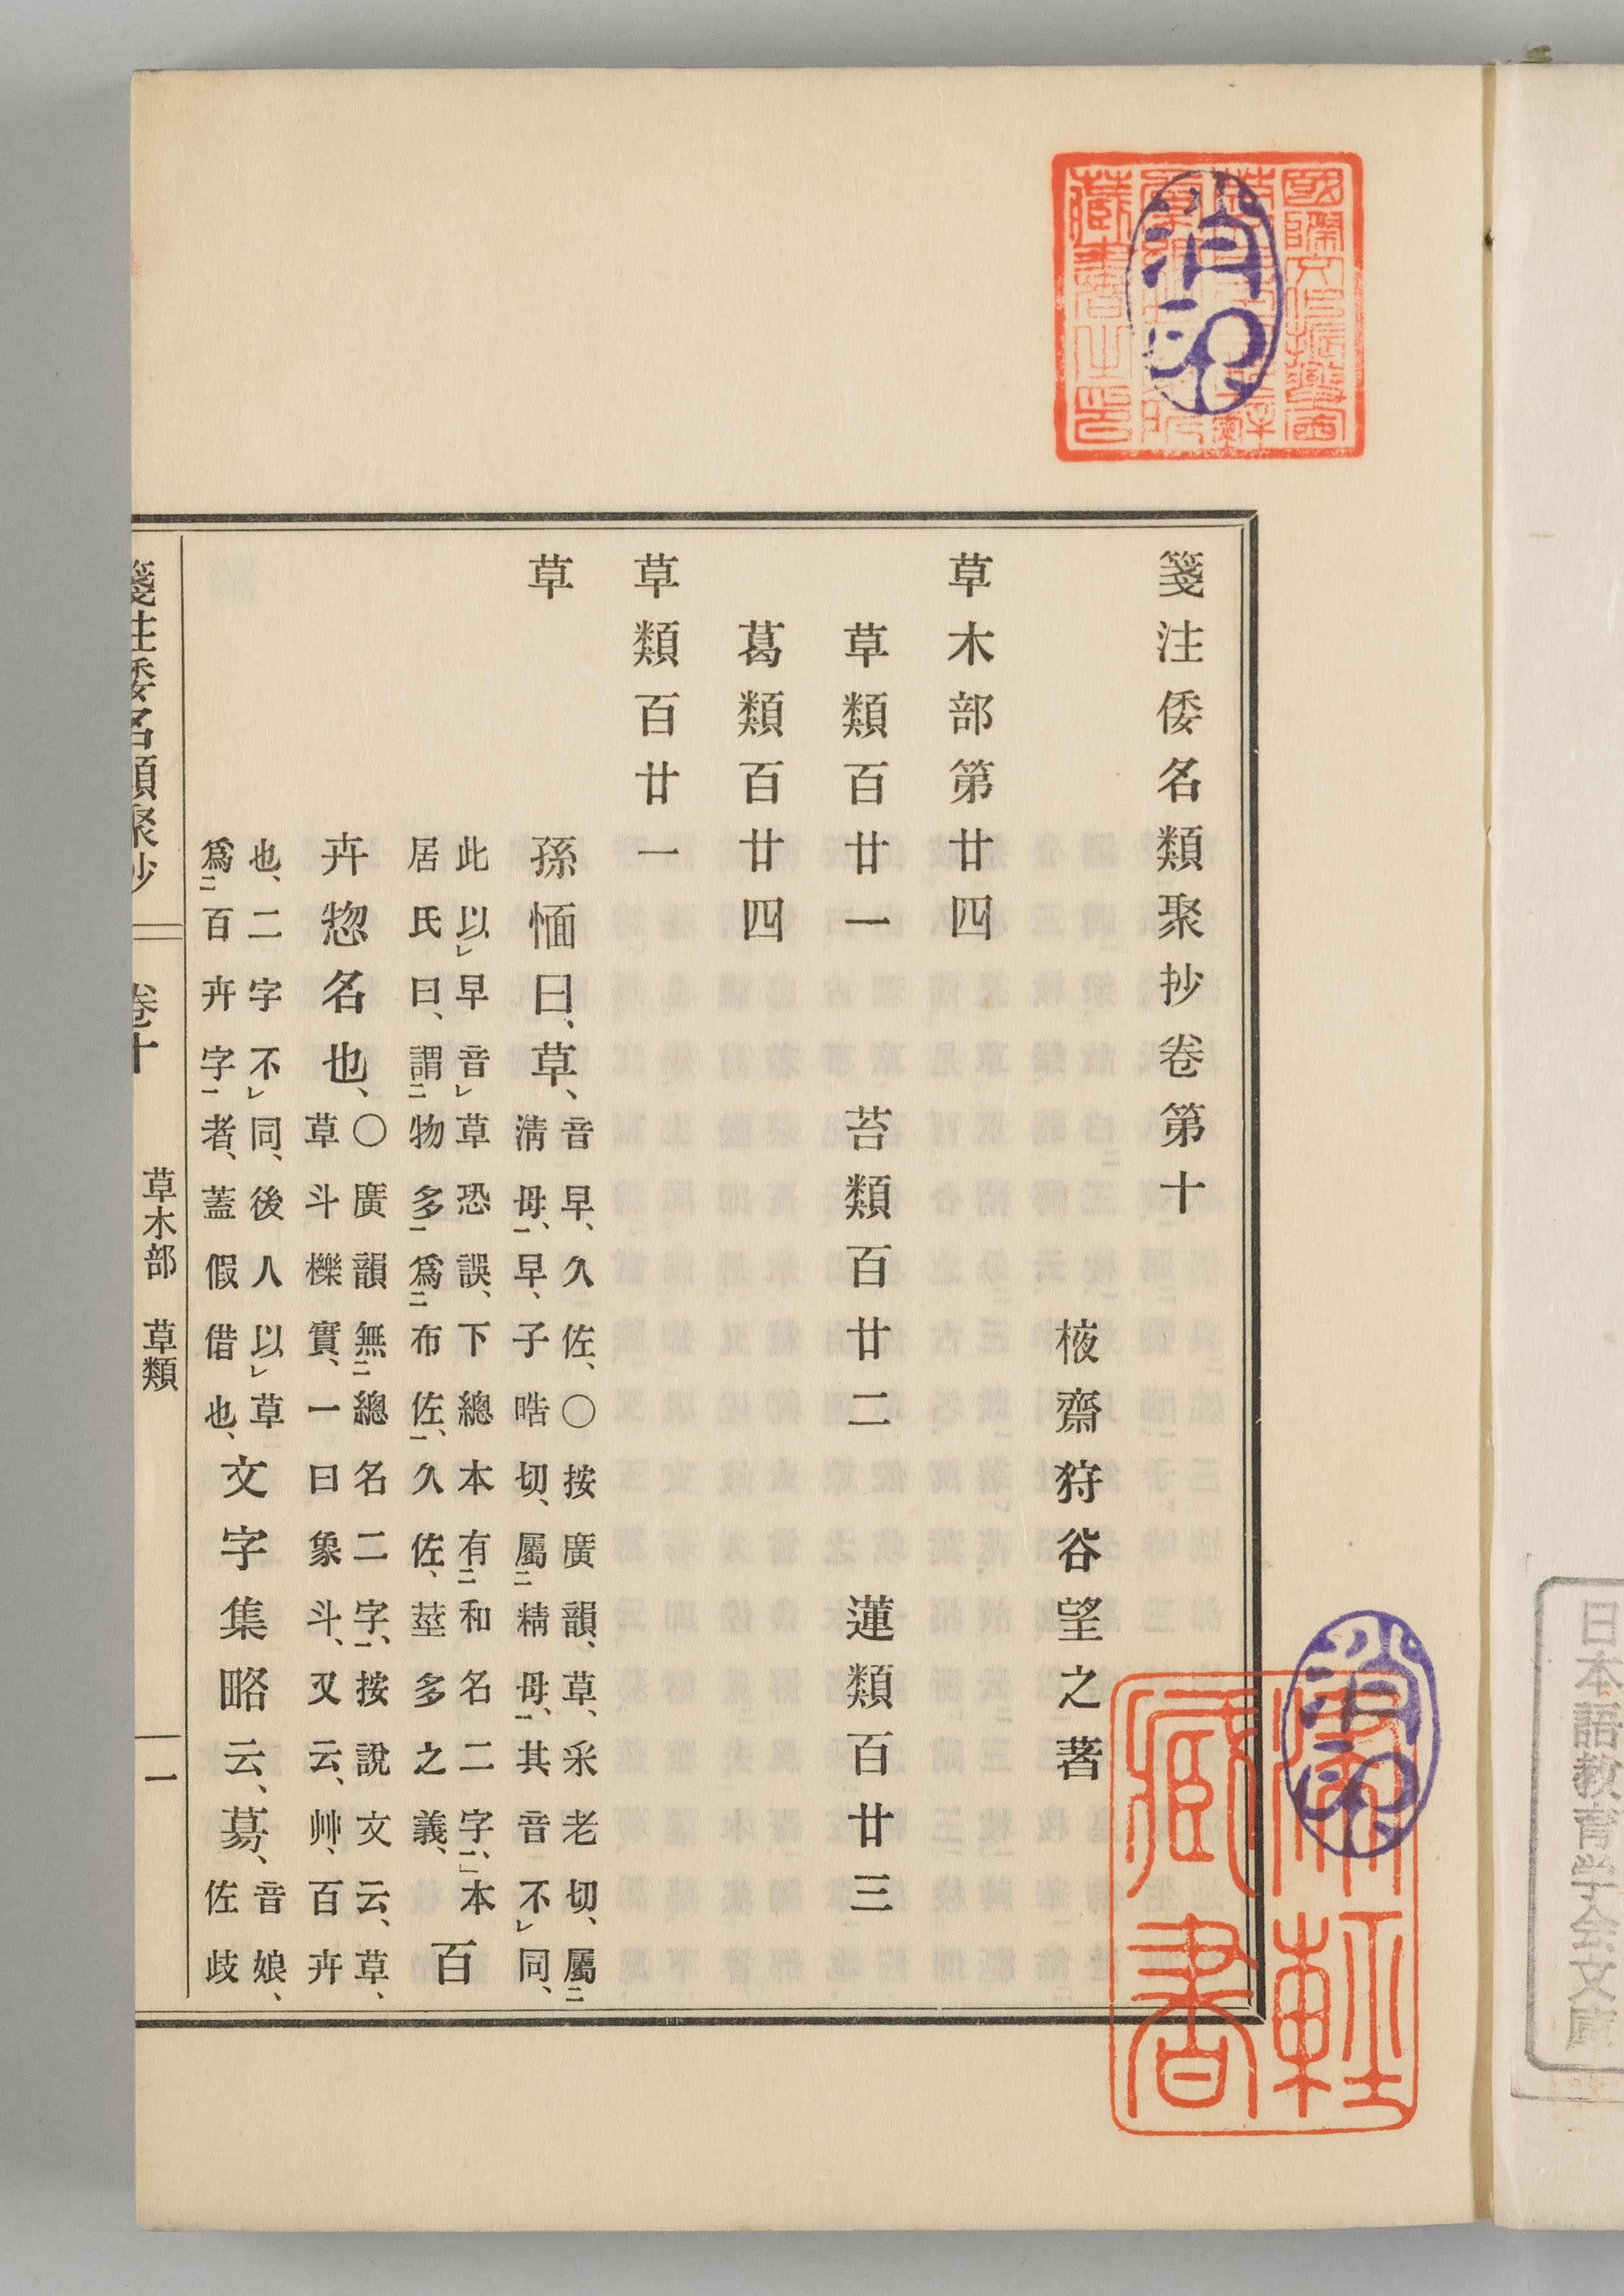 日本語教育学会文庫
消印
箋注倭名類聚抄卷第十
棭齋狩谷望之著
草木部第廿四
草類百廿一　苔類百廿二　蓮類百廿三
葛類百廿四
草類百廿一
草　孫愐曰、草、
音早、久佐、〇按廣韻、草、采老切、屬二
淸母一、早、子晧切、屬二精母一、其音不レ同、
此以レ早音レ草恐誤、下總本有二和名二字一、本
居氏曰、謂二物多一爲二布佐一、久佐、莖多之義、
百
卉惣名也、
〇廣韻無二總名二字一、按說文云、草、
草斗櫟實、一曰象斗、又云、艸、百卉
也、二字不レ同、後人以レ草
爲二百卉字一者、蓋假借也、
文字集略云、
音娘、
佐歧
箋注倭名類聚抄　卷十　草木部　草類　一
消印
藏書